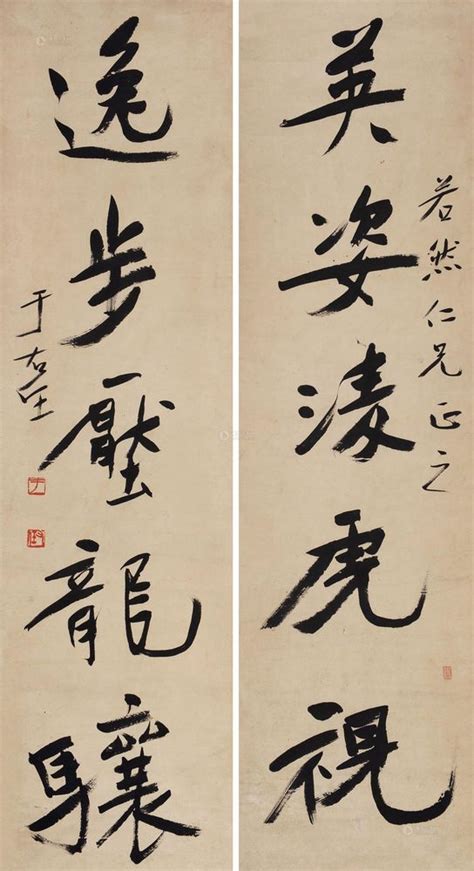 英姿淩虎視
若然仁兄正之
逸步壓龍驤
于右任